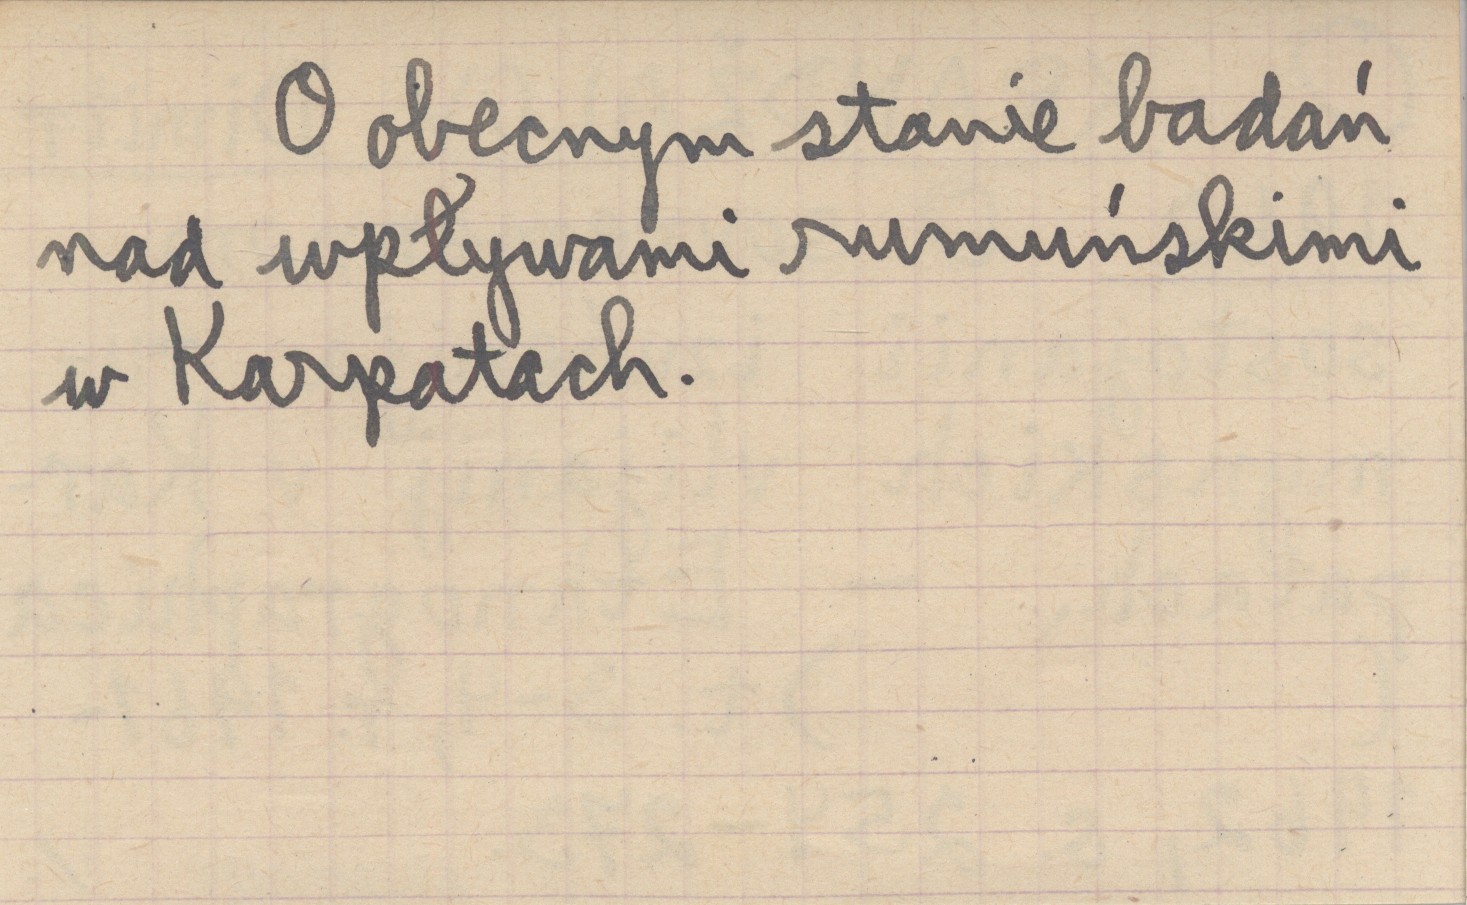 O obecnym stanie badań
nad wpływami rumuńskimi
w Karpatach.